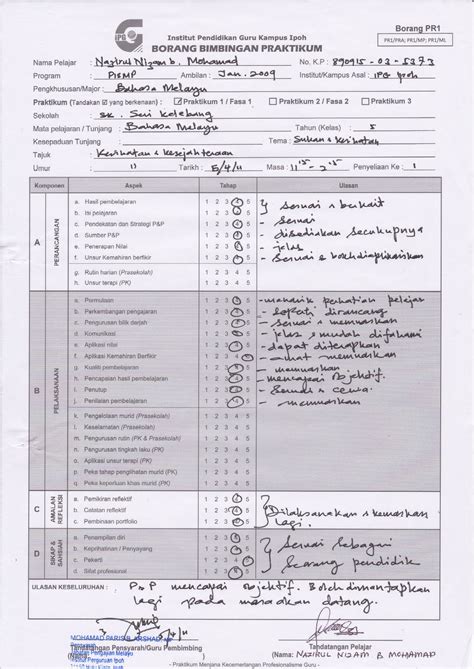 Borang PR1
PR1/PRA; PR1/MP; PR1/ML
IPG
Institut Pendidikan Guru Kampus Ipoh
BORANG BIMBINGAN PRAKTIKUM
Nama Pelajar : Nazirul Nizam b. Mohamad No. K.P : 890915-03-5373
Program : PISMP Ambilan : Jan. 2009 Institut/Kampus Asal : IPG Ipoh
Pengkhususan/Major : Bahasa Melayu
Praktikum (Tandakan ☑ yang berkenaan) : ☑ Praktikum 1 / Fasa 1 ☐ Praktikum 2 / Fasa 2 ☐ Praktikum 3
Sekolah : SK. Seri Kelebang
Mata pelajaran / Tunjang : Bahasa Melayu Tahun (Kelas) : 5
Kesepaduan Tunjang : Tema : Sukan & Kesihatan
Tajuk : Kesihatan & Kesejahteraan
Umur : 11 Tarikh : 5/4/11 Masa : 11:15 - 2:15 Penyeliaan Ke : 1
Komponen Aspek Tahap Ulasan
A PERANCANGAN
a. Hasil pembelajaran 1 2 3 4 5 sesuai &
b. Isi pelajaran 1 2 3 4 5
c. Pendekatan dan Strategi P&P 1 2 3 4 5 - sesuai
d. Sumber P&P 1 2 3 4 5 - disediakan secukupnya
e. Penerapan Nilai 1 2 3 4 5 - jelas
f. Unsur Kemahiran berfikir 1 2 3 4 5 - sesuai & boleh diaplikasikan
g. Rutin harian (Prasekolah) 1 2 3 4 5
h. Unsur terapi (PK) 1 2 3 4 5
B PELAKSANAAN
a. Permulaan 1 2 3 4 5 - menarik perhatian pelajar
b. Perkembangan pengajaran 1 2 3 4 5 - seperti dirancang
c. Pengurusan bilik darjah 1 2 3 4 5 - sesuai & memuaskan
d. Komunikasi 1 2 3 4 5 - jelas & mudah difahami
e. Aplikasi nilai 1 2 3 4 5 - dapat diterapkan
f. Aplikasi Kemahiran Berfikir 1 2 3 4 5 - amat memuaskan
g. Kualiti pembelajaran 1 2 3 4 5 - memuaskan
h. Pencapaian hasil pembelajaran 1 2 3 4 5 - mencapai objektif.
i. Penutup 1 2 3 4 5 - sesuai &
j. Penilaian pembelajaran 1 2 3 4 5 - memuaskan
k. Pengelolaan murid (Prasekolah) 1 2 3 4 5
l. Keselamatan (Prasekolah) 1 2 3 4 5
m. Pengurusan rutin (PK & Prasekolah) 1 2 3 4 5
n. Pengurusan tingkah laku (PK) 1 2 3 4 5
o. Aplikasi unsur terapi (PK) 1 2 3 4 5
p. Peka tahap penglibatan murid (PK) 1 2 3 4 5
q. Peka keperluan khas murid (PK) 1 2 3 4 5
C AMALAN REFLEKSI
a. Pemikiran reflektif 1 2 3 4 5
b. Catatan reflektif 1 2 3 4 5 Dilaksanakan & kemaskan
c. Pembinaan portfolio 1 2 3 4 5 lagi.
D SIKAP & SAHSIAH
a. Penampilan diri 1 2 3 4 5
b. Keprihatinan / Penyayang 1 2 3 4 5 sesuai sebagai
c. Pekerti 1 2 3 4 5 seorang pendidik
d. Sifat profesional 1 2 3 4 5
ULASAN KESELURUHAN : P&P mencapai objektif. Boleh dimantapkan
lagi pada masa akan datang.
5/4/11
Tandatangan Pensyarah/Guru Pembimbing
Tandatangan Pelajar
(Nama: NAZIRUL NIZAM B. MOHAMAD)
- Praktikum Menjana Kecemerlangan Profesionalisme Guru -